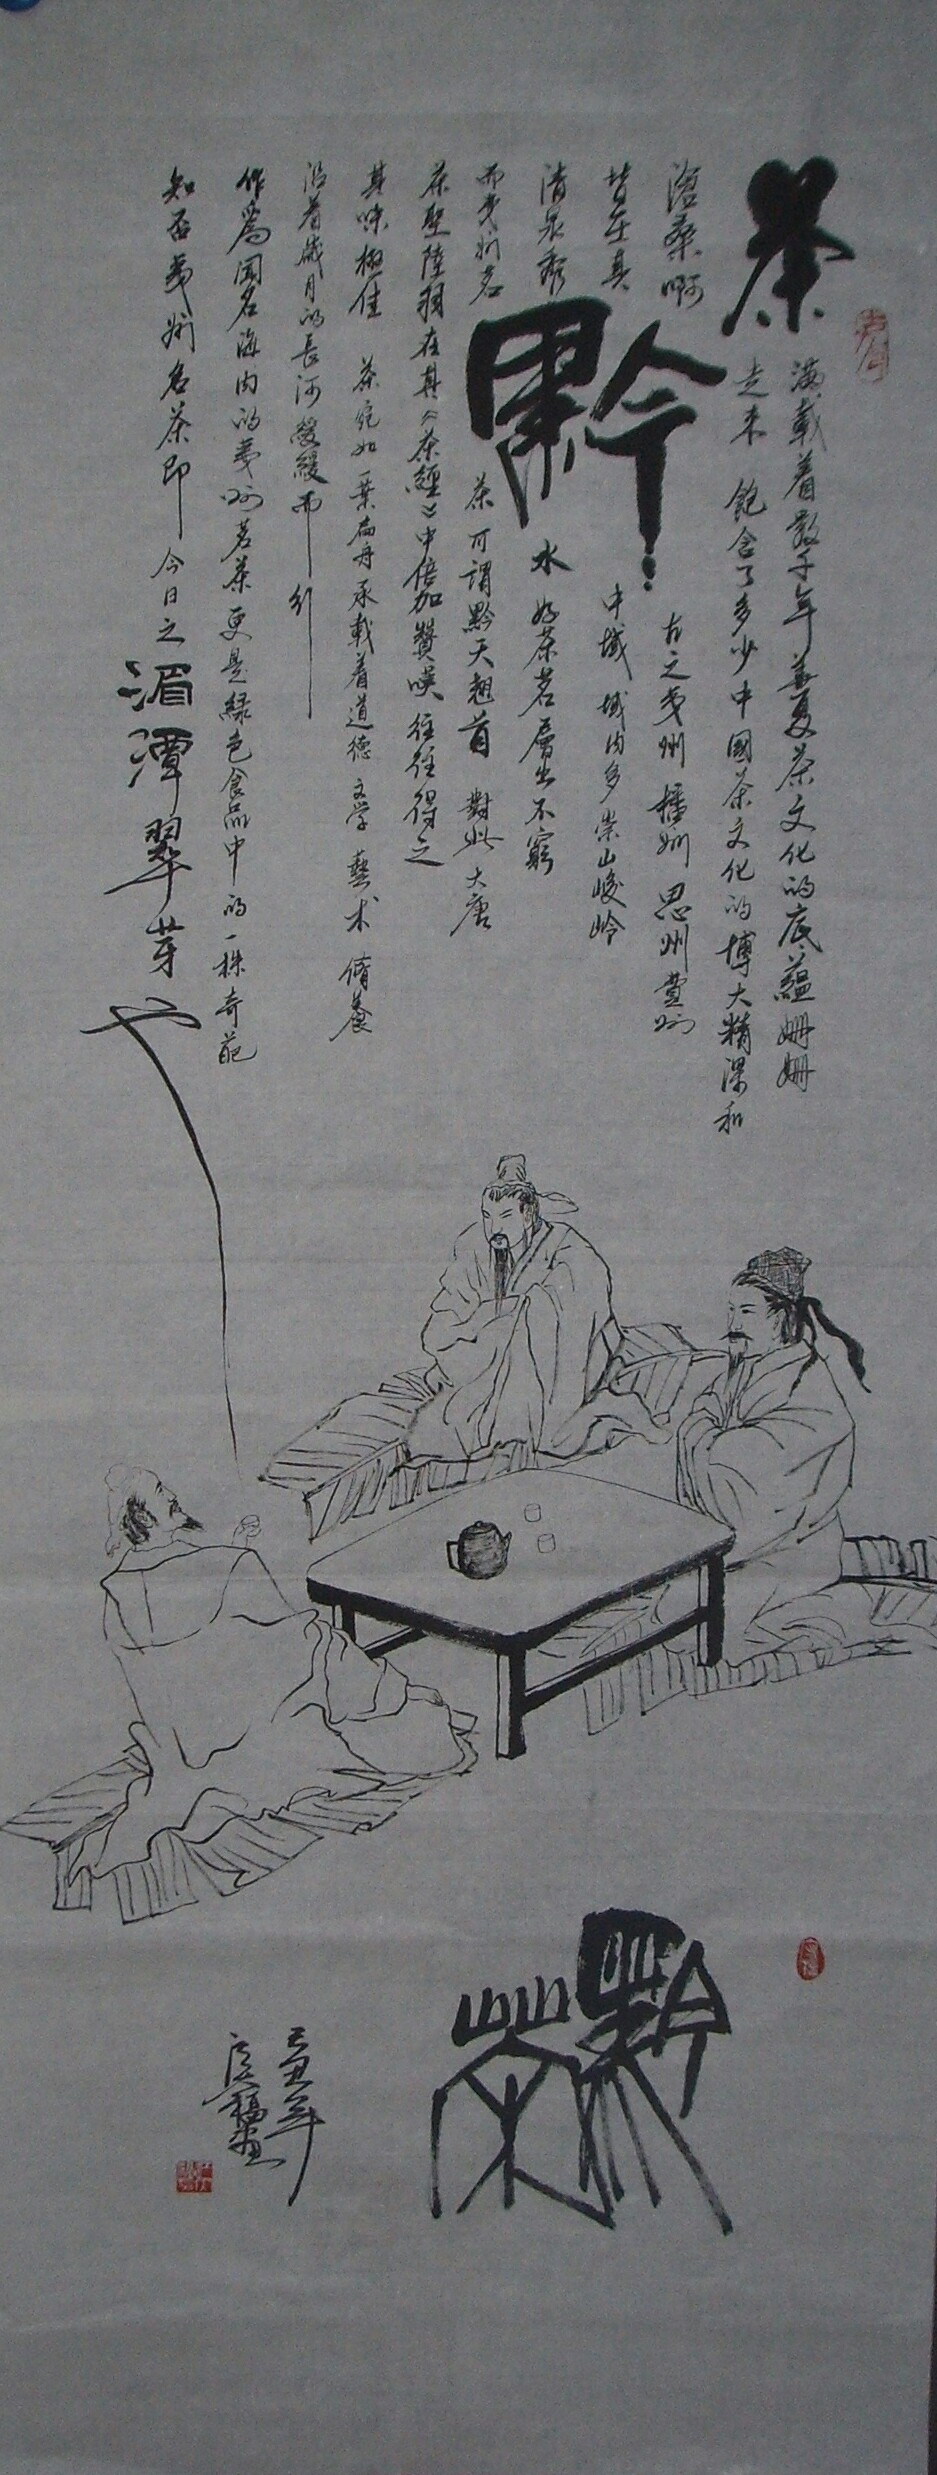 茶
满載着數千年華夏茶文化的底蘊姍姍
走来 飽含了多少中國茶文化的博大精深和
滄桑啊
黔
古之夷州 播州 思州 費州
皆在其中域 域内多崇山峻岭
清泉秀水 好茶茗層出不窮
而夷州茗茶可謂黔天翹首 對此 大唐
茶聖陸羽在其《茶經》中倍加贊嘆 往往得之
其味極佳 茶宛如一葉扁舟承載着道德 文学 藝术 脩養
沿着歲月的長河缓缓而行
作為闻名海内的夷州茗茶更是綠色食品中的一株奇葩
知否夷州名茶即今日之湄潭翠芽也
黔
茶
己丑年